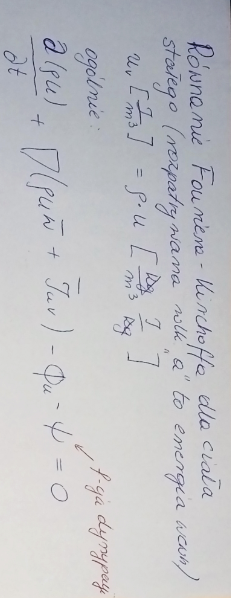 Równanie Fouriera-Kirchoffa dla ciała
stałego (rozpatrywana wlk "a" to energia wewn)
u_v [J/m³] = ρ·u [kg/m³ J/kg]
ogólnie:
∂(ρu)/∂t + ∇(ρu w̄ + J̄_uv) - Φ_u - Ψ = 0
f-cja dyssypacji